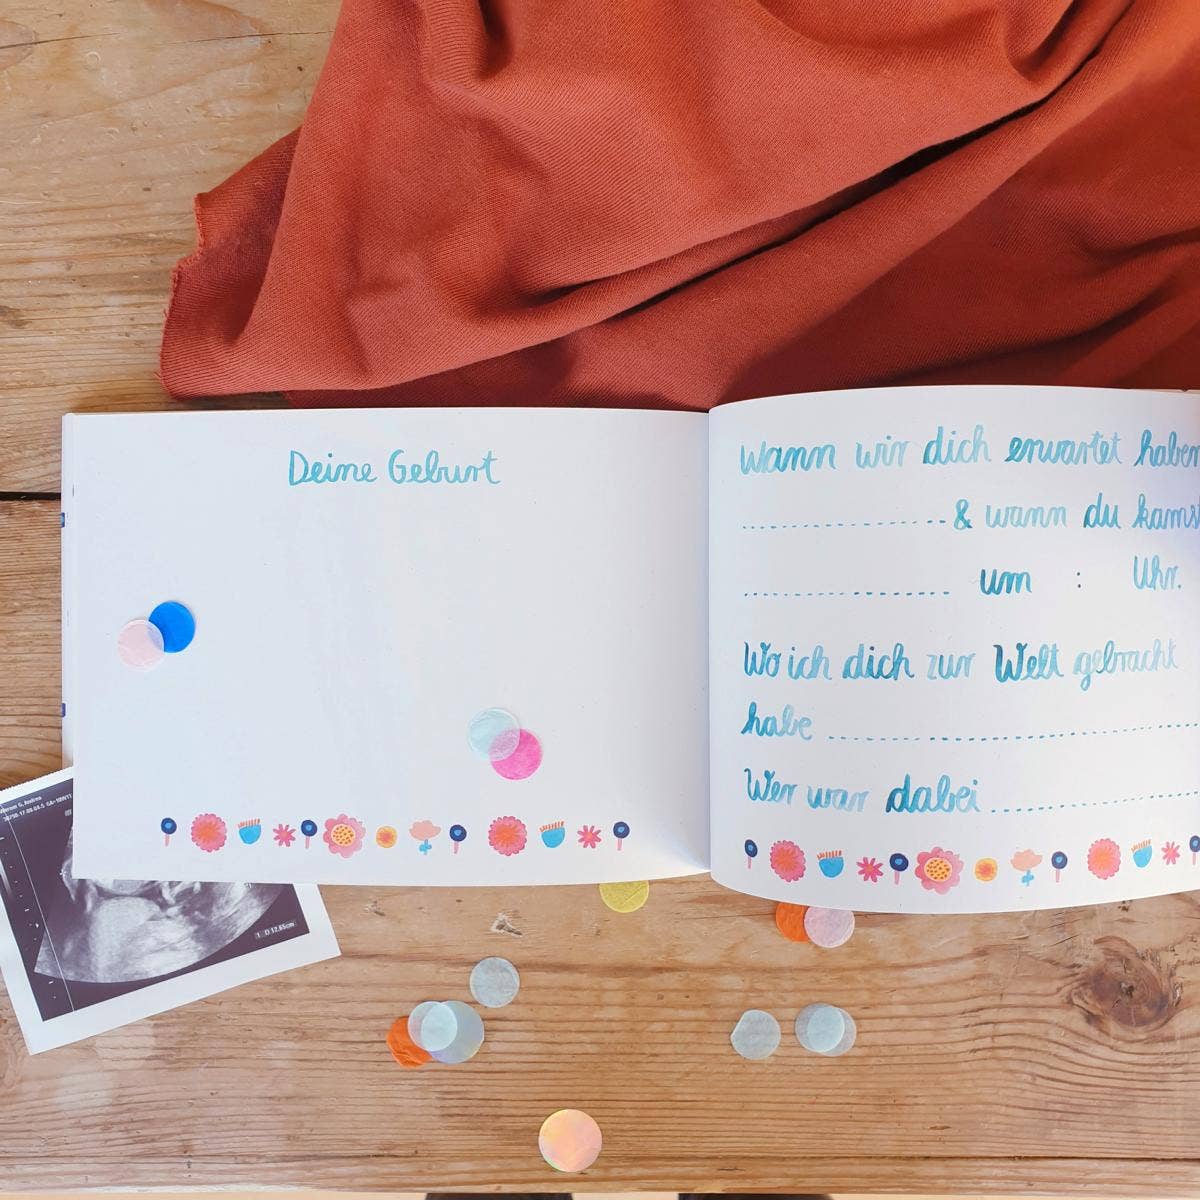 Deine Geburt
Wann wir dich erwartet haben
& wann du kamst
um : Uhr.
Wo ich dich zur Welt gebracht
habe
Wer war dabei
1 D 12.85cm